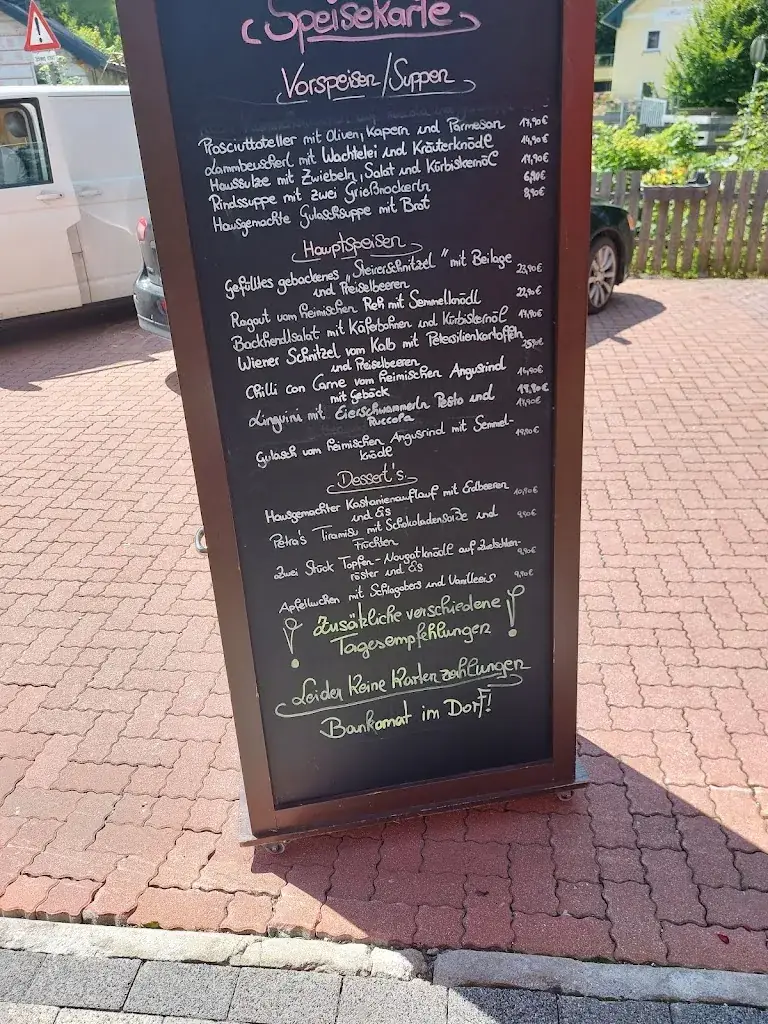 Speisekarte
Vorspeisen/Suppen
Prosciuttoteller mit Oliven, Kapern und Parmesan 17,90€
Lammbeuscherl mit Wachtelei und Kräuterknödl 14,90€
Haussulze mit Zwiebeln, Salat und Kürbiskernöl 11,90€
Rindssuppe mit zwei Grießnockerln 6,90€
Hausgemachte Gulaschsuppe mit Brot 8,90€
Hauptspeisen
Gefülltes gebackenes „Steirerschnitzel" mit Beilage 23,90€
und Preiselbeeren
Ragout vom heimischen Reh mit Semmelknödl 22,90€
Backhendlsalat mit Käferbohnen und Kürbiskernöl
Wiener Schnitzel vom Kalb mit Petersilienkartoffeln
und Preiselbeeren
Chilli con Carne vom heimischen Angusrind
mit Gebäck
Linguini mit Eierschwammerln Pesto und
Ruccola
Gulasch vom heimischen Angusrind mit Semmel- 19,90€
knödl
Dessert's
Hausgemachter Kastanienauflauf mit Erdbeeren 10,90€
und Eis
Petra's Tiramisu mit Schokoladensoße und 9,90€
Früchten
Zwei Stück Topfen-Nougatknödl auf Zwetschken- 9,90€
röster und Eis
Apfelkuchen mit Schlagobers und Vanilleeis 9,90€
Zusätzliche verschiedene
Tagesempfehlungen
Leider keine Kartenzahlungen
Bankomat im Dorf!